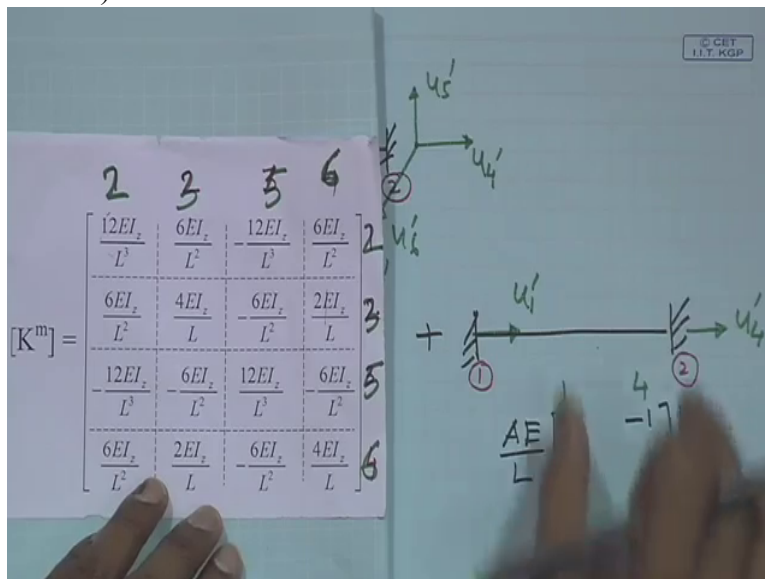 © CET
I.I.T. KGP
u5'
u4'
2
u6'
2 3 5 6
[K^m] =
12EI_z/L^3 6EI_z/L^2 -12EI_z/L^3 6EI_z/L^2 2
6EI_z/L^2 4EI_z/L -6EI_z/L^2 2EI_z/L 3
-12EI_z/L^3 -6EI_z/L^2 12EI_z/L^3 -6EI_z/L^2 5
6EI_z/L^2 2EI_z/L -6EI_z/L^2 4EI_z/L 6
+
u1'
u4'
1 2
4
AE/L
-1